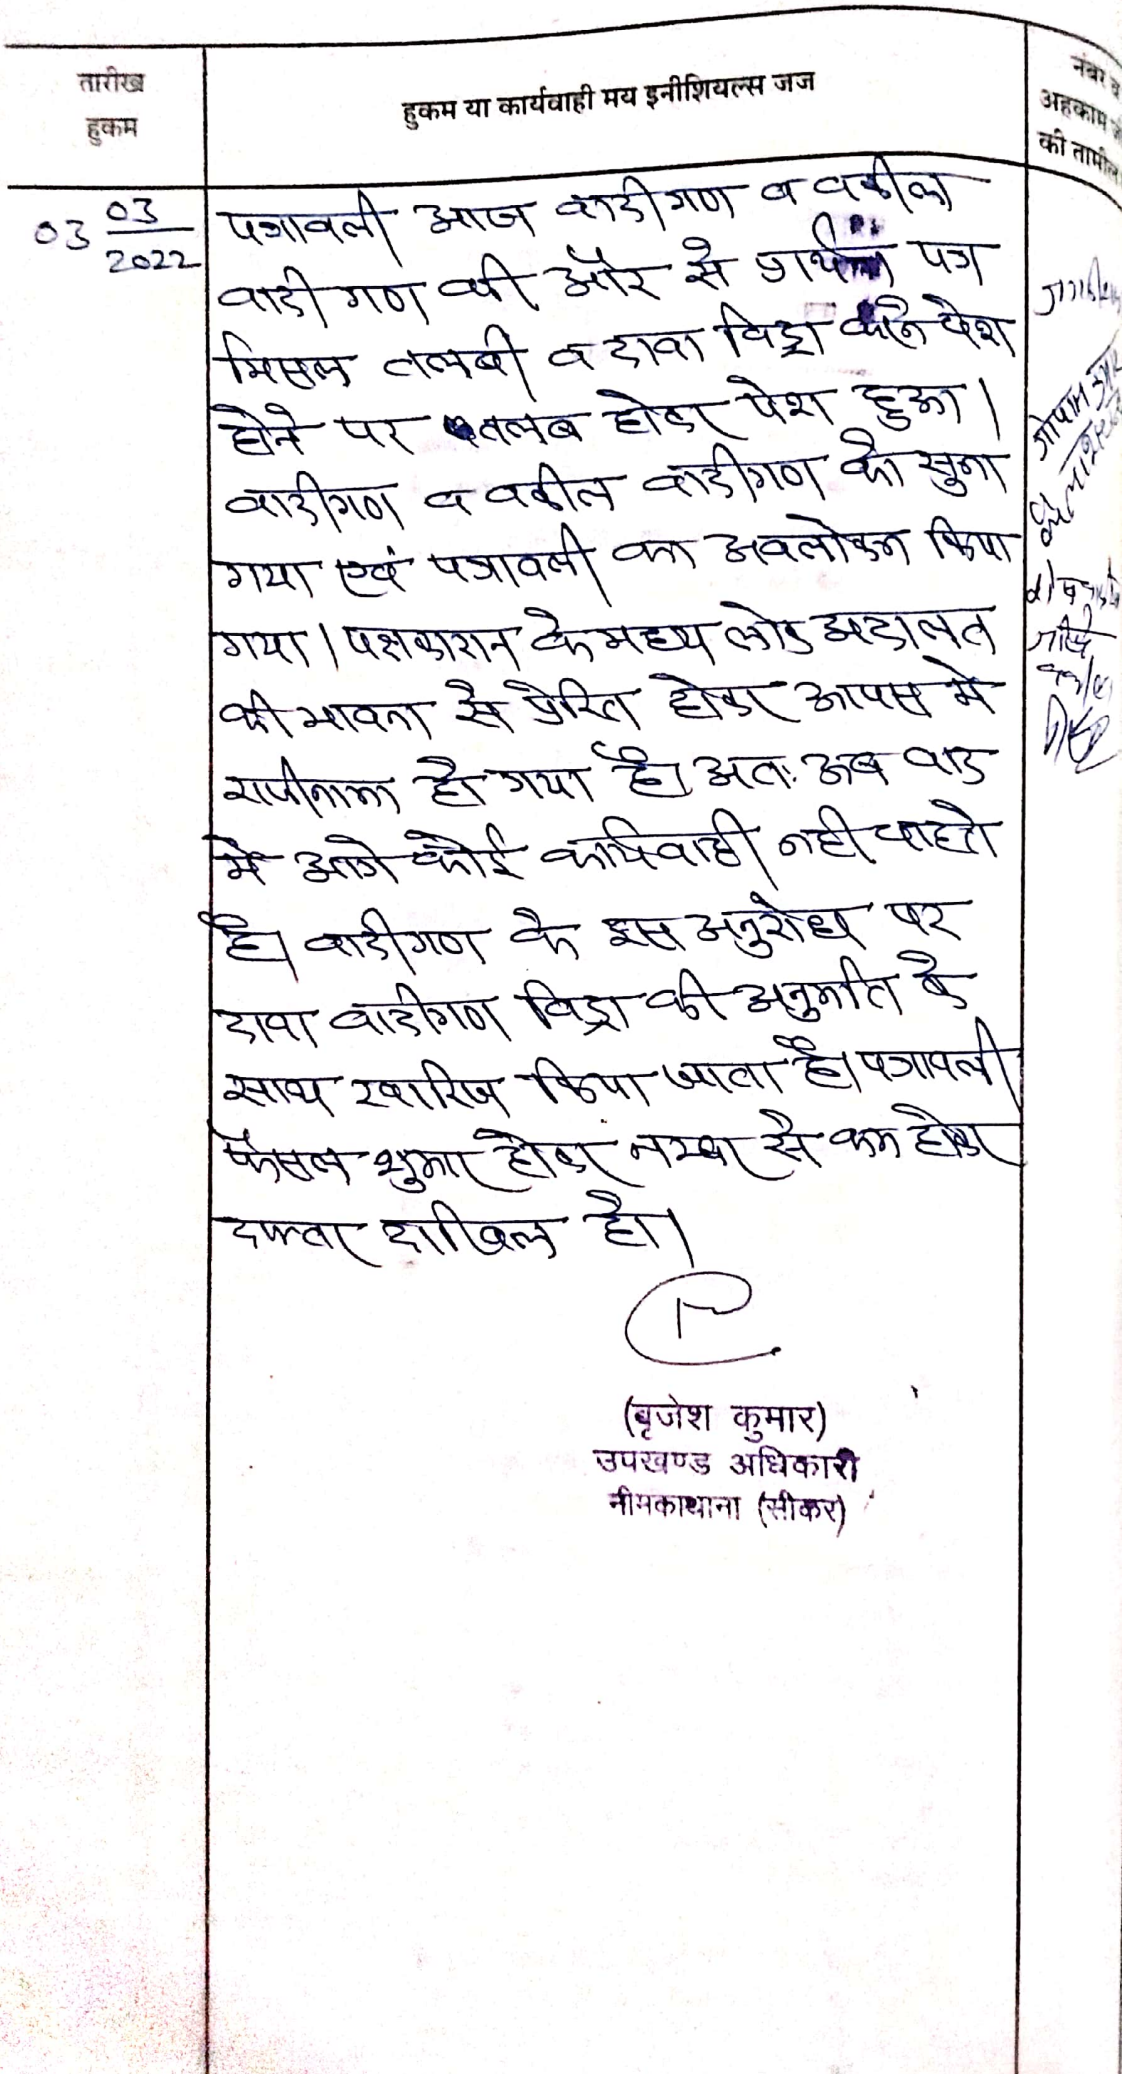 तारीख
हुकम
हुकम या कार्यवाही मय इनीशियल्स जज
नंबर व
अहकाम
की तामील
03 03/2022
पत्रावली आज वादीगण व वकील
वादीगण की ओर से प्रार्थना पत्र
मिसल तलबी व दावा विड्रा करने पेश
होने पर तलब होकर पेश हुआ।
वादीगण व वकील वादीगण को सुना
गया एवं पत्रावली का अवलोकन किया
गया। पक्षकारान के मध्य लोक अदालत
की भावना से प्रेरित होकर आपस मे
राजीनामा हो गया है। अतः अब वाद
में आगे कोई कार्यवाही नही चाहते
है। वादीगण के इस अनुरोध पर
दावा वादीगण विड्रा की अनुमति के
साथ खारिज किया जाता है। पत्रावली
फैसल शुमार होकर नम्बर से कम होकर
दफ्तर दाखिल हो।
(बृजेश कुमार)
उपखण्ड अधिकारी
नीमकाथाना (सीकर)
गोपाल